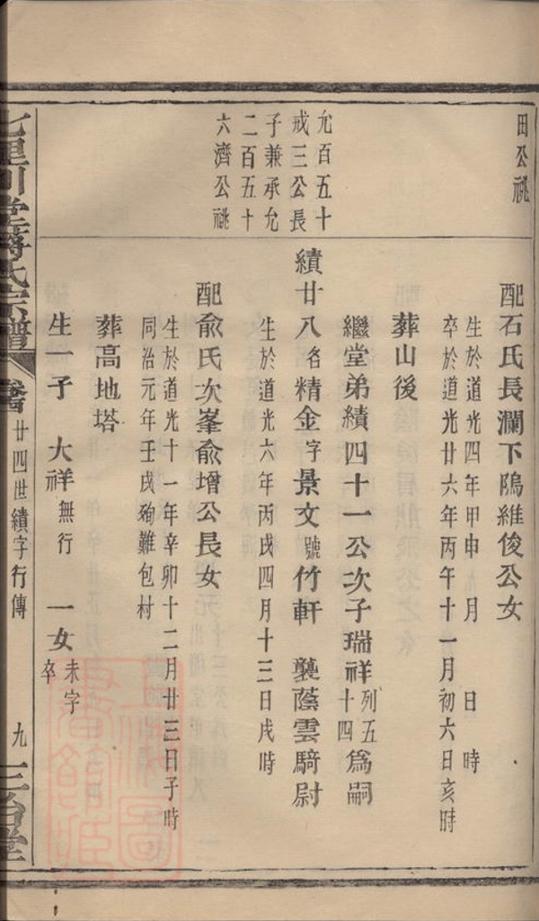 田公祧
配石氏長瀾下隝維俊公女
生於道光四年甲申九月 日 時
卒於道光廿六年丙午十一月初六日亥時
葬山後
繼堂弟績四十一公次子瑞祥列五十四爲嗣
允百五十
戒三公長
子兼承允
二百五十
六濟公祧
績廿八名精金字景文號竹軒 襲蔭雲騎尉
生於道光六年丙戌四月十三日戌時
配俞氏次峯俞增公長女
生於道光十一年辛卯十二月廿三日子時
同治元年壬戌殉難包村
葬高地塔
生一子 大祥無行 一女未字卒
七里 氏宗譜
廿四世績字行傳
九
三 堂